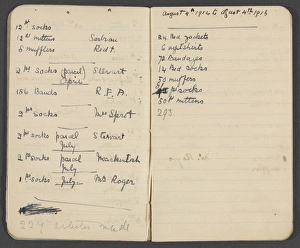 12 pr socks
12 pr mittens Serbian
5 mufflers Red +.
2 pr socks (parcel) Stewart
April
154 Bands R.F.A.
2 pr socks Mrs Sprot
2 pr socks parcel Stewart
July
2 pr socks parcel Mackintosh
July
1 pr socks July. Mrs Roger
224 articles made
August 9th 1914 to August 4th 1915
24 Bed jackets
6 nightshirts
72 Bandages
14 Bed socks
50 mufflers
pr socks
50 pr mittens
293